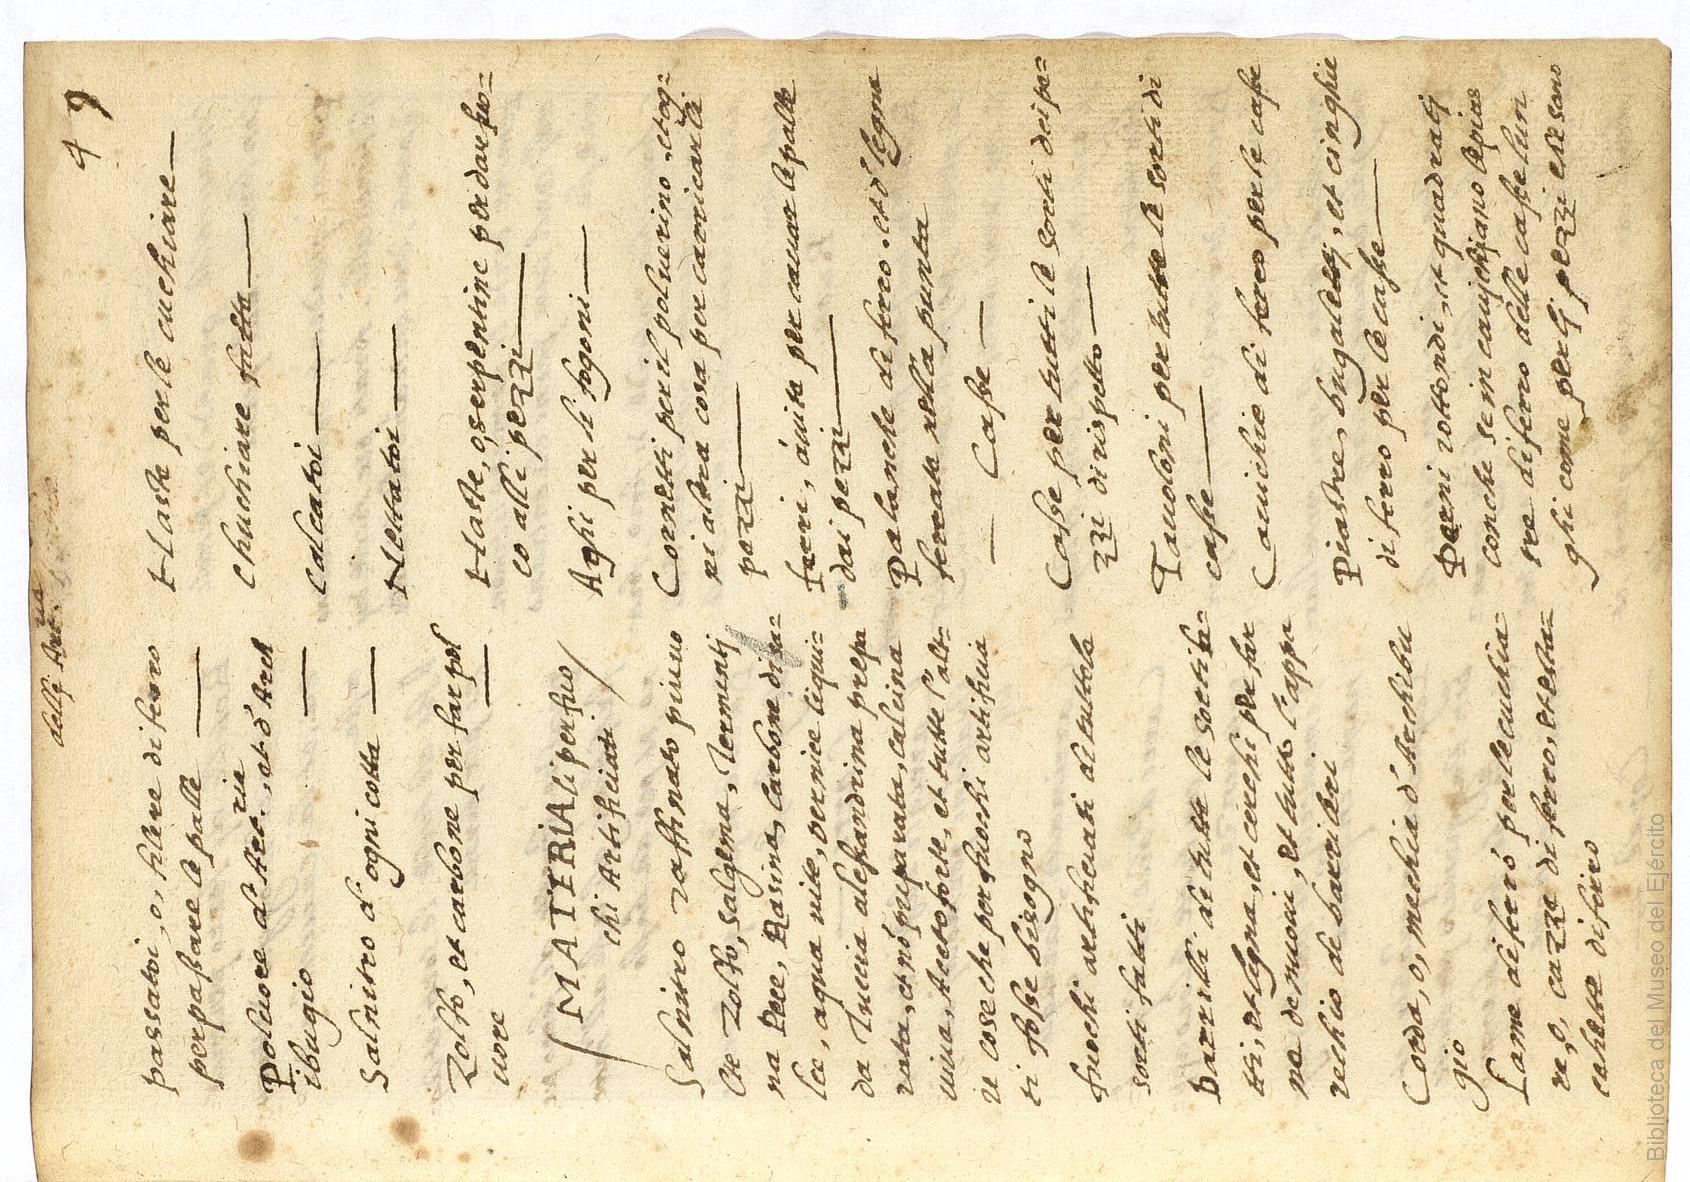 49
dell' Artria
passatoi, o, filiere di ferro
per passare le palle
Poluore d'Artria, et d'Arch
ibugio
Salnitro d'ogni cotta
Zolfo, et carbone per far pol
uore
MATERIALi per fuo
chi Artificiati
Salnitro raffinato piu uo
te Zolfo, salgema, Termentj
na Pece, Rasina, carbone di sa
lce, aqua uite, vernice liqui=
da Tuccia alesandrina prepa
rata, et nō preparata, calcina
uiua, Aceto forte, et tutte l'alt=
re cose che per fuochi artifitia
ti fosse bisogno
fuochi artifitiati di tutte le
sorti fatti
Barrilli di tutte le sorti fa=
tti, et legna, et cerchi per far
ne de nuoui, et tutto l'appa
rechio de barrileri
Corda, o, mechia d'Archibu
gio
Lame di ferro per le cuchia=
re, o, cazze di ferro, et
di ferro
Haste per le cuchiare
Chuchiare fatte
Calcatoi
Nettatoi
Haste, o, serpentine per dar fuo=
co alli pezzi
Aghi per li fogoni
Cornetti per il poluerino, et og=
ni altra cosa per carricar li
pezzi
ferri, a uite per cauar le palle
dai pezzi
Palanche di ferro, et d'legna
ferrate nella punta
Casse
Casse per tutti le sorti dei pe=
zzi di rispetto
Tauoloni per tutte le sorti di
casse
Cauichie di ferro per le casse
Piastre, brugalettj, et cinghie
di ferro per le casse
Perni rottondi, et quadratj
con che se incauichjano le pias
tre di ferro delle casse
ghi come per lj pezzi